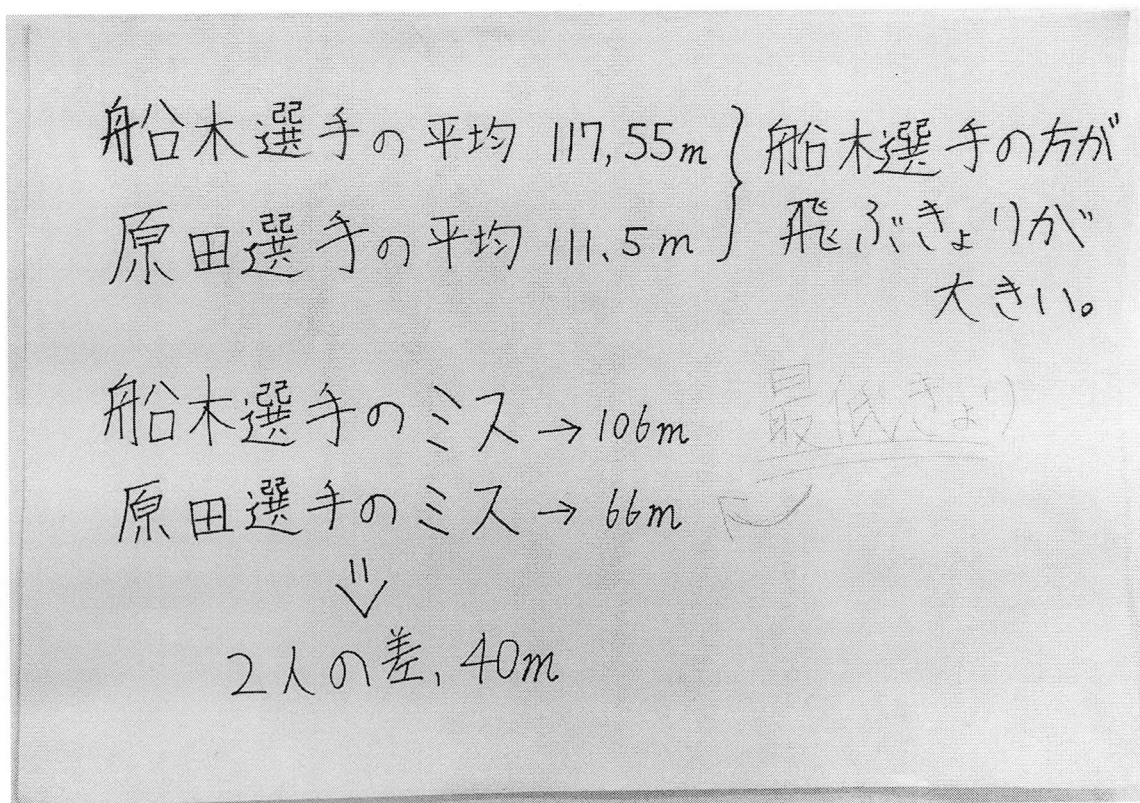 船木選手の平均 117,55m
原田選手の平均 111.5m
船木選手の方が
飛ぶきょりが
大きい。
船木選手のミス → 106m
原田選手のミス → 66m
最低きょり
⇓
2人の差、40m